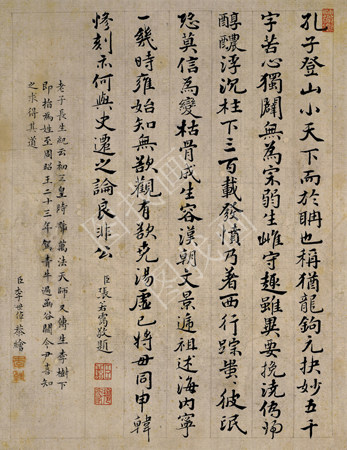 孔子登山小天下而於聃也稱猶龍鉤元抉妙五千
字苦心獨闢無為宗弱生雌守趣雖異要挽澆偽歸
醇醲浮沉柱下三百載發憤乃著西行踪黃彼泯
恐莫信為變枯骨成生容漢朝文景遞祖述海內寧
一幾時雍始知無欲觀有欲堯湯虛己將毋同申韓
慘刻亦何與史遷之論良非公
臣張若靄敬題
老子長生紀云初三皇時號萬法天師又傳生李樹下
即指為姓至周昭王二十三年駕青牛過函谷關令尹喜知
之求得其道
臣李世倬恭繪